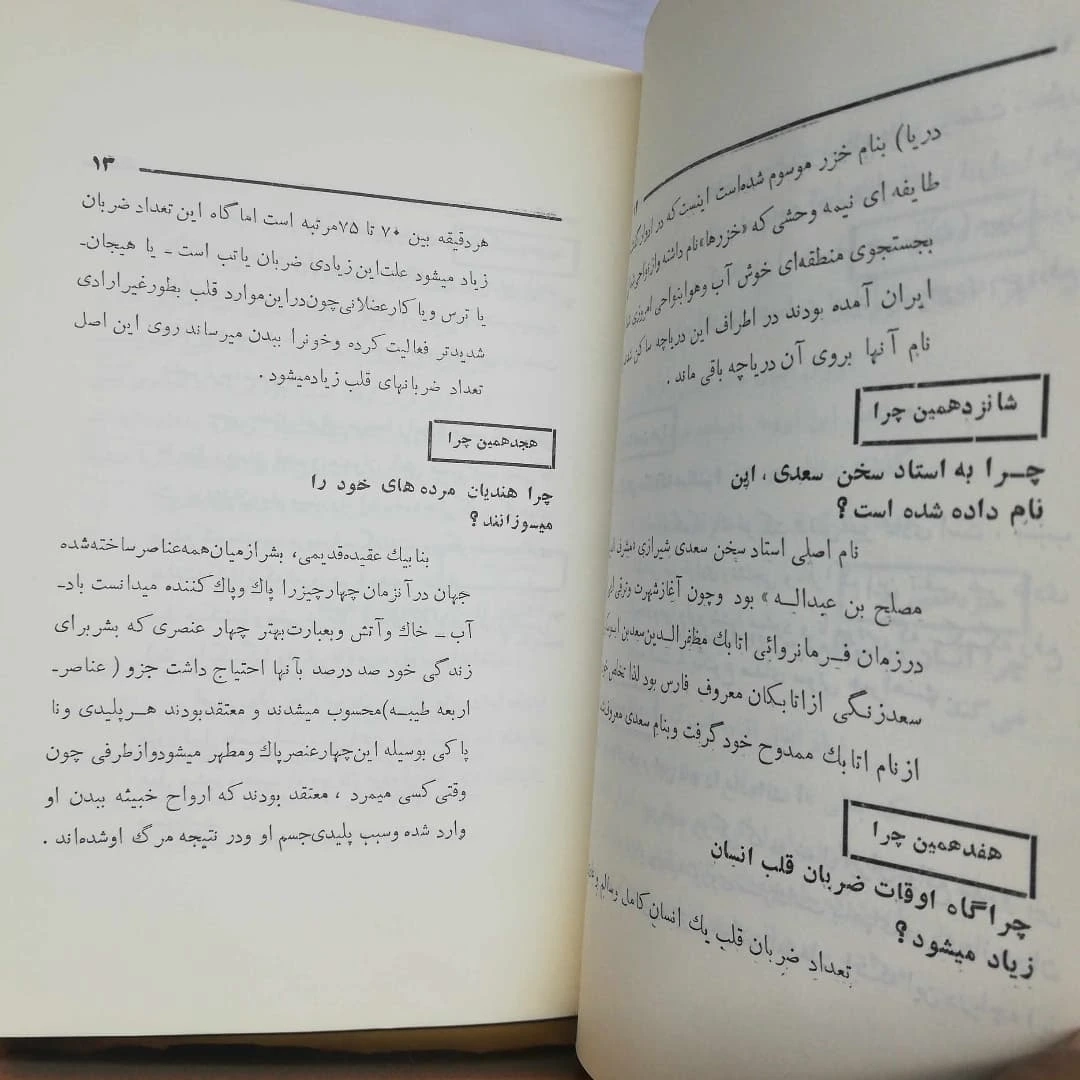 دریا) بنام خزر موسوم شده‌است اینست که در ادوار
طایفه ای نیمه وحشی که «خزرها» نام داشته واز نواحی
بجستجوی منطقه‌ای خوش آب وهوابنواحی امروزی
ایران آمده بودند در اطراف این دریاچه ساکن
نام آنها بروی آن دریاچه باقی ماند .
شانزدهمین چرا
چرا به استاد سخن سعدی ، این
نام داده شده است ؟
نام اصلی استاد سخن سعدی شیرازی «مشرف
مصلح بن عبداله » بود وچون آغاز شهرت وترقی
درزمان فرمانروائی اتابك مظفرالدین سعدبن
سعدزنگی ازاتابکان معروف فارس بود لذا تخلص
ازنام اتابك ممدوح خود گرفت وبنام سعدی معروف
هفدهمین چرا
چراگاه اوقات ضربان قلب انسان
زیاد میشود ؟
تعداد ضربان قلب یك انسان کامل وسالم
۱۳
هردقیقه بین ۷۰ تا ۷۵مرتبه است اما گاه این تعداد ضربان
زیاد میشود علت‌این زیادی ضربان یاتب است ـ یا هیجان‌ـ
یا ترس ویا کارعضلانی‌چون‌دراین‌موارد قلب بطورغیرارادی
شدیدتر فعالیت کرده وخونرا ببدن میرساند روی این اصل
تعداد ضربانهای قلب زیادمیشود .
هجدهمین چرا
چرا هندیان مرده های خود را
میسوزانند ؟
بنابیك عقیده‌قدیمی، بشرازمیان‌همه‌عناصرساخته‌شده
جهان درآنزمان چهارچیزرا پاك وپاك کننده میدانست بادـ
آب ـ خاك وآتش وبعبارت‌بهتر چهار عنصری که بشربرای
زندگی خود صد درصد بآنها احتیاج داشت جزو ( عناصرـ
اربعه طیبه)محسوب میشدند و معتقدبودند هرپلیدی ونا
پاکی بوسیله این‌چهارعنصرپاك ومطهر میشودوازطرفی چون
وقتی کسی میمرد ، معتقد بودند که ارواح خبیثه ببدن او
وارد شده وسبب پلیدی‌جسم او ودر نتیجه مرگ اوشده‌اند .